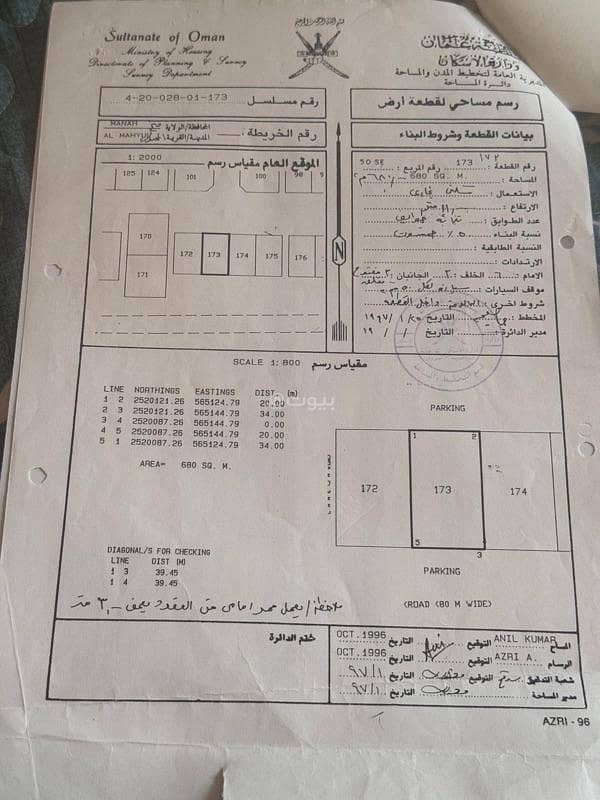 Sultanate of Oman
Ministry of Housing
Directorate of Planning & Survey
Survey Department
سلطنة عمان
وزارة الإسكان
المديرية العامة لتخطيط المدن والمساحة
دائرة المساحة
4-20-028-01-173 رقم مسلسل
رسم مساحي لقطعة أرض
MANAH
AL MAHYUL
المحافظة/الولاية
المدينة/القرية
رقم الخريطة
بيانات القطعة وشروط البناء
1: 2000
الموقع العام مقياس رسم
125 124 101 100 98 9
170
171
172 173 174 175 176
N
رقم القطعة : 173 ١٧٣ رقم المربع : 50 SE
المساحة : 680 SQ. M. ٦٨٠ م٢
الاستعمال :
الارتفاع :
عدد الطوابق :
نسبة البناء : ٥٠٪
النسبة الطابقية :
الارتدادات :
الامام : ٦ الخلف : ٣ الجانبان : ٣
موقف السيارات :
شروط اخرى : داخل القطعة
المخطط : التاريخ ١٩٩٧/١/٢٥
مدير الدائرة : التاريخ / / ١٩
SCALE 1:800 مقياس رسم
LINE NORTHINGS EASTINGS DIST. (m)
1 2 2520121.26 565124.79 20.00
2 3 2520121.26 565144.79 34.00
3 4 2520087.26 565144.79 0.00
4 5 2520087.26 565144.79 20.00
5 1 2520087.26 565124.79 34.00
AREA= 680 SQ. M.
PARKING
1 2
172 173 174
5 3
PARKING
(ROAD (80 M WIDE)
DIAGONAL/S FOR CHECKING
LINE DIST (M)
1 3 39.45
1 4 39.45
ختم الدائرة
المساح ANIL KUMAR التوقيع التاريخ OCT.1996
الرسام AZRI A. التوقيع التاريخ OCT.1996
شعبة التدقيق التوقيع التاريخ ٩٧/١
مدير المساحة التاريخ ٩٧/١
AZRI - 96
بيوت